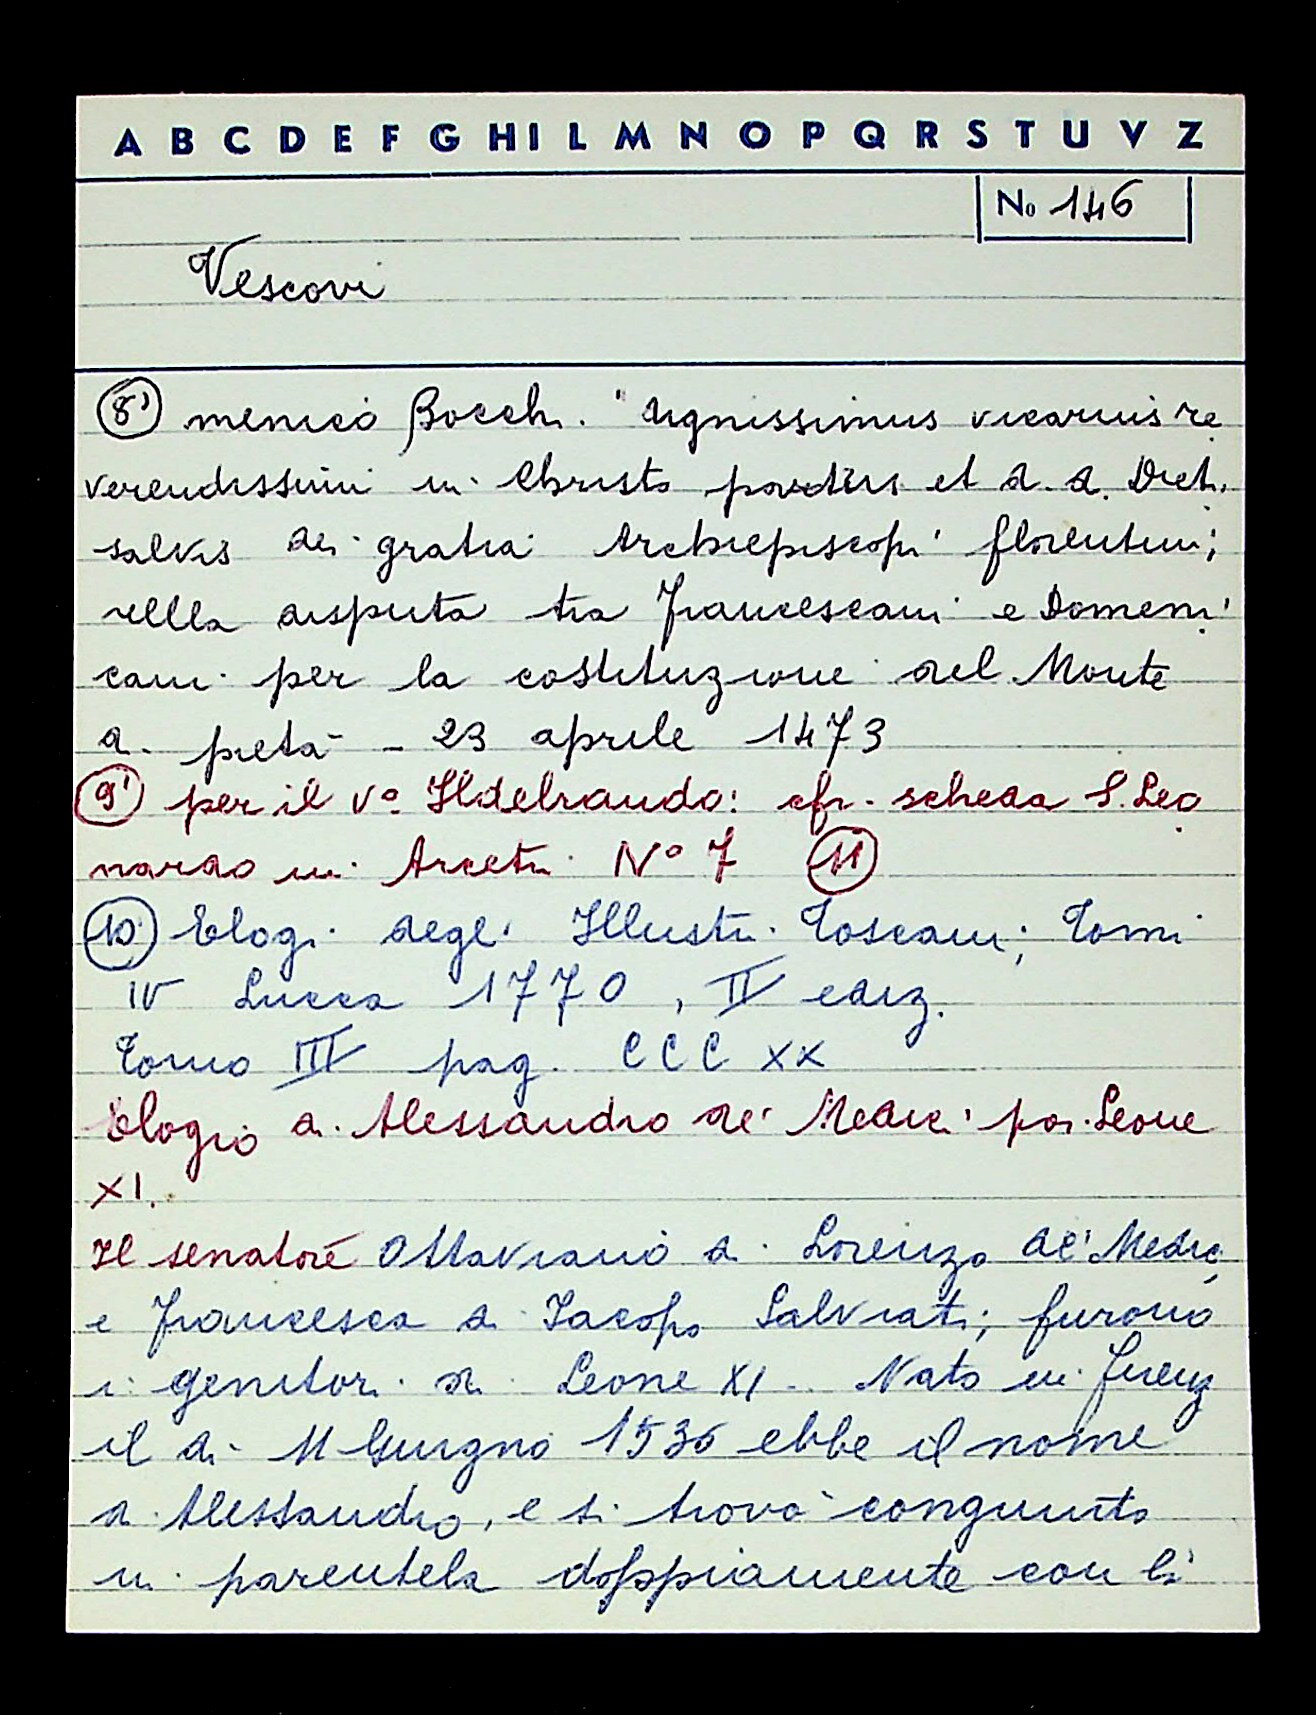 A B C D E F G H I L M N O P Q R S T U V Z
No 146
Vescovi
8') menico Bocchi. "dignissimus vicarius re
verendissimi in Christo patris et d. d. Dieti
salvis dei gratia Archiepiscopi florentini;
nella disputa tra Francescani e Domeni
cani per la costituzione del Monte
di pietà - 23 aprile 1473
9') per il vo Ildebrando: cfr. scheda S. Leo
nardo in Arcetri No 7 (11)
10) Elogi degli Illustri Toscani; Tomi
IV Lucca 1770, II ediz.
Tomo III pag. CCC XX
Elogio di Alessandro de' Medici poi Leone
XI.
Il senatore Ottaviano di Lorenzo de' Medici
e Francesca di Iacopo Salviati; furono
i genitori di Leone XI. Nato in Firenz
il dì 11 Giugno 1536 ebbe il nome
di Alessandro, e si trovò congiunto
in parentela doppiamente con li